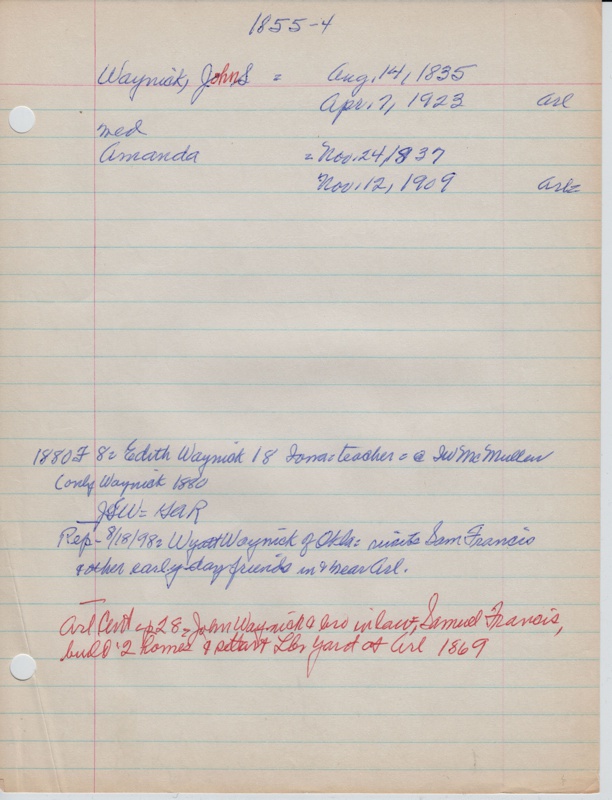 1855-4
Waynick, John S = Aug. 14, 1835
Apr. 7, 1923 Arl
med
Amanda = Nov. 24 1837
Nov. 12, 1909 Arl=
1880 F 8 = Edith Waynick 18 Iona = teacher = @ IW McMullen
(only Waynick 1880
JSW = GAR
Rep - 8/18/98 = Wyatt Waynick of Okla = visits Sam Francis
& other early day friends in & near Arl.
Arl Cent p 28 = John Waynick & bro in law, Samuel Francis,
build 2 homes & start Lbr Yard at Arl 1869